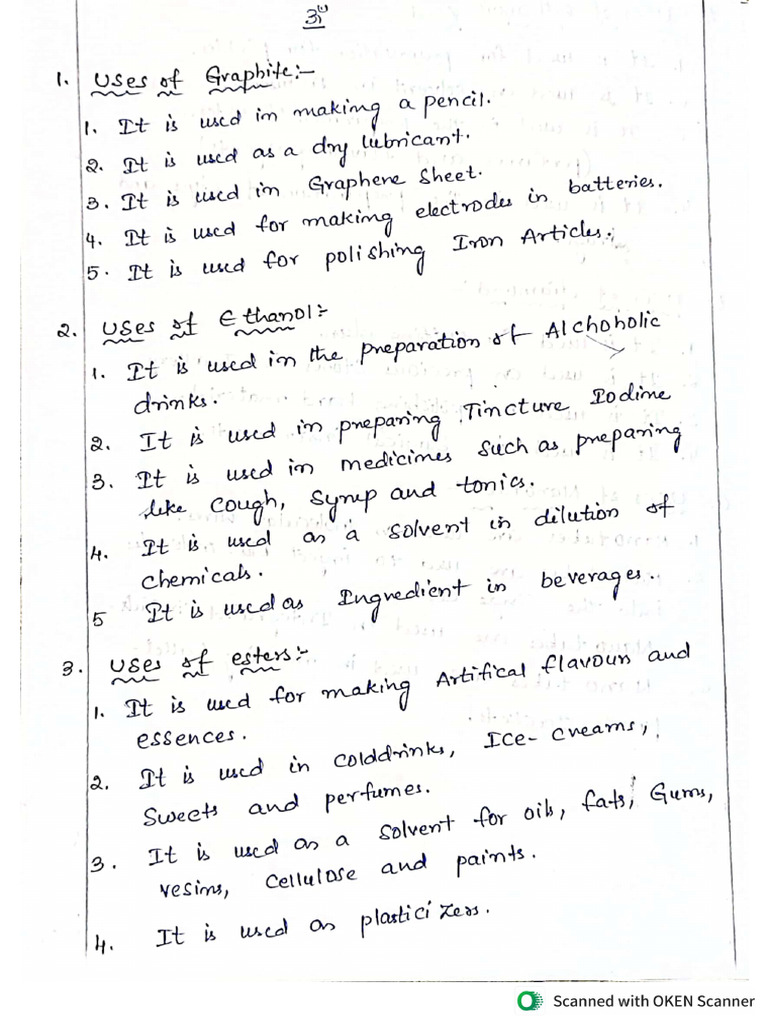 1. Uses of Graphite:-
1. It is used in making a pencil.
2. It is used as a dry lubricant.
3. It is used in Graphene Sheet.
4. It is used for making electrodes in batteries.
5. It is used for polishing Iron Articles.
2. Uses of Ethanol:-
1. It is used in the preparation of Alchoholic
drinks.
2. It is used in preparing Tincture Iodine
3. It is used in medicines such as preparing
like cough, syrup and tonics.
4. It is used as a solvent in dilution of
chemicals.
5 It is used as Ingredient in beverages.
3. Uses of esters:-
1. It is used for making Artifical flavours and
essences.
2. It is used in colddrinks, Ice-creams,
Sweets and perfumes.
3. It is used as a solvent for oils, fats, Gums,
resins, cellulose and paints.
4. It is used as plasticizers.
Scanned with OKEN Scanner